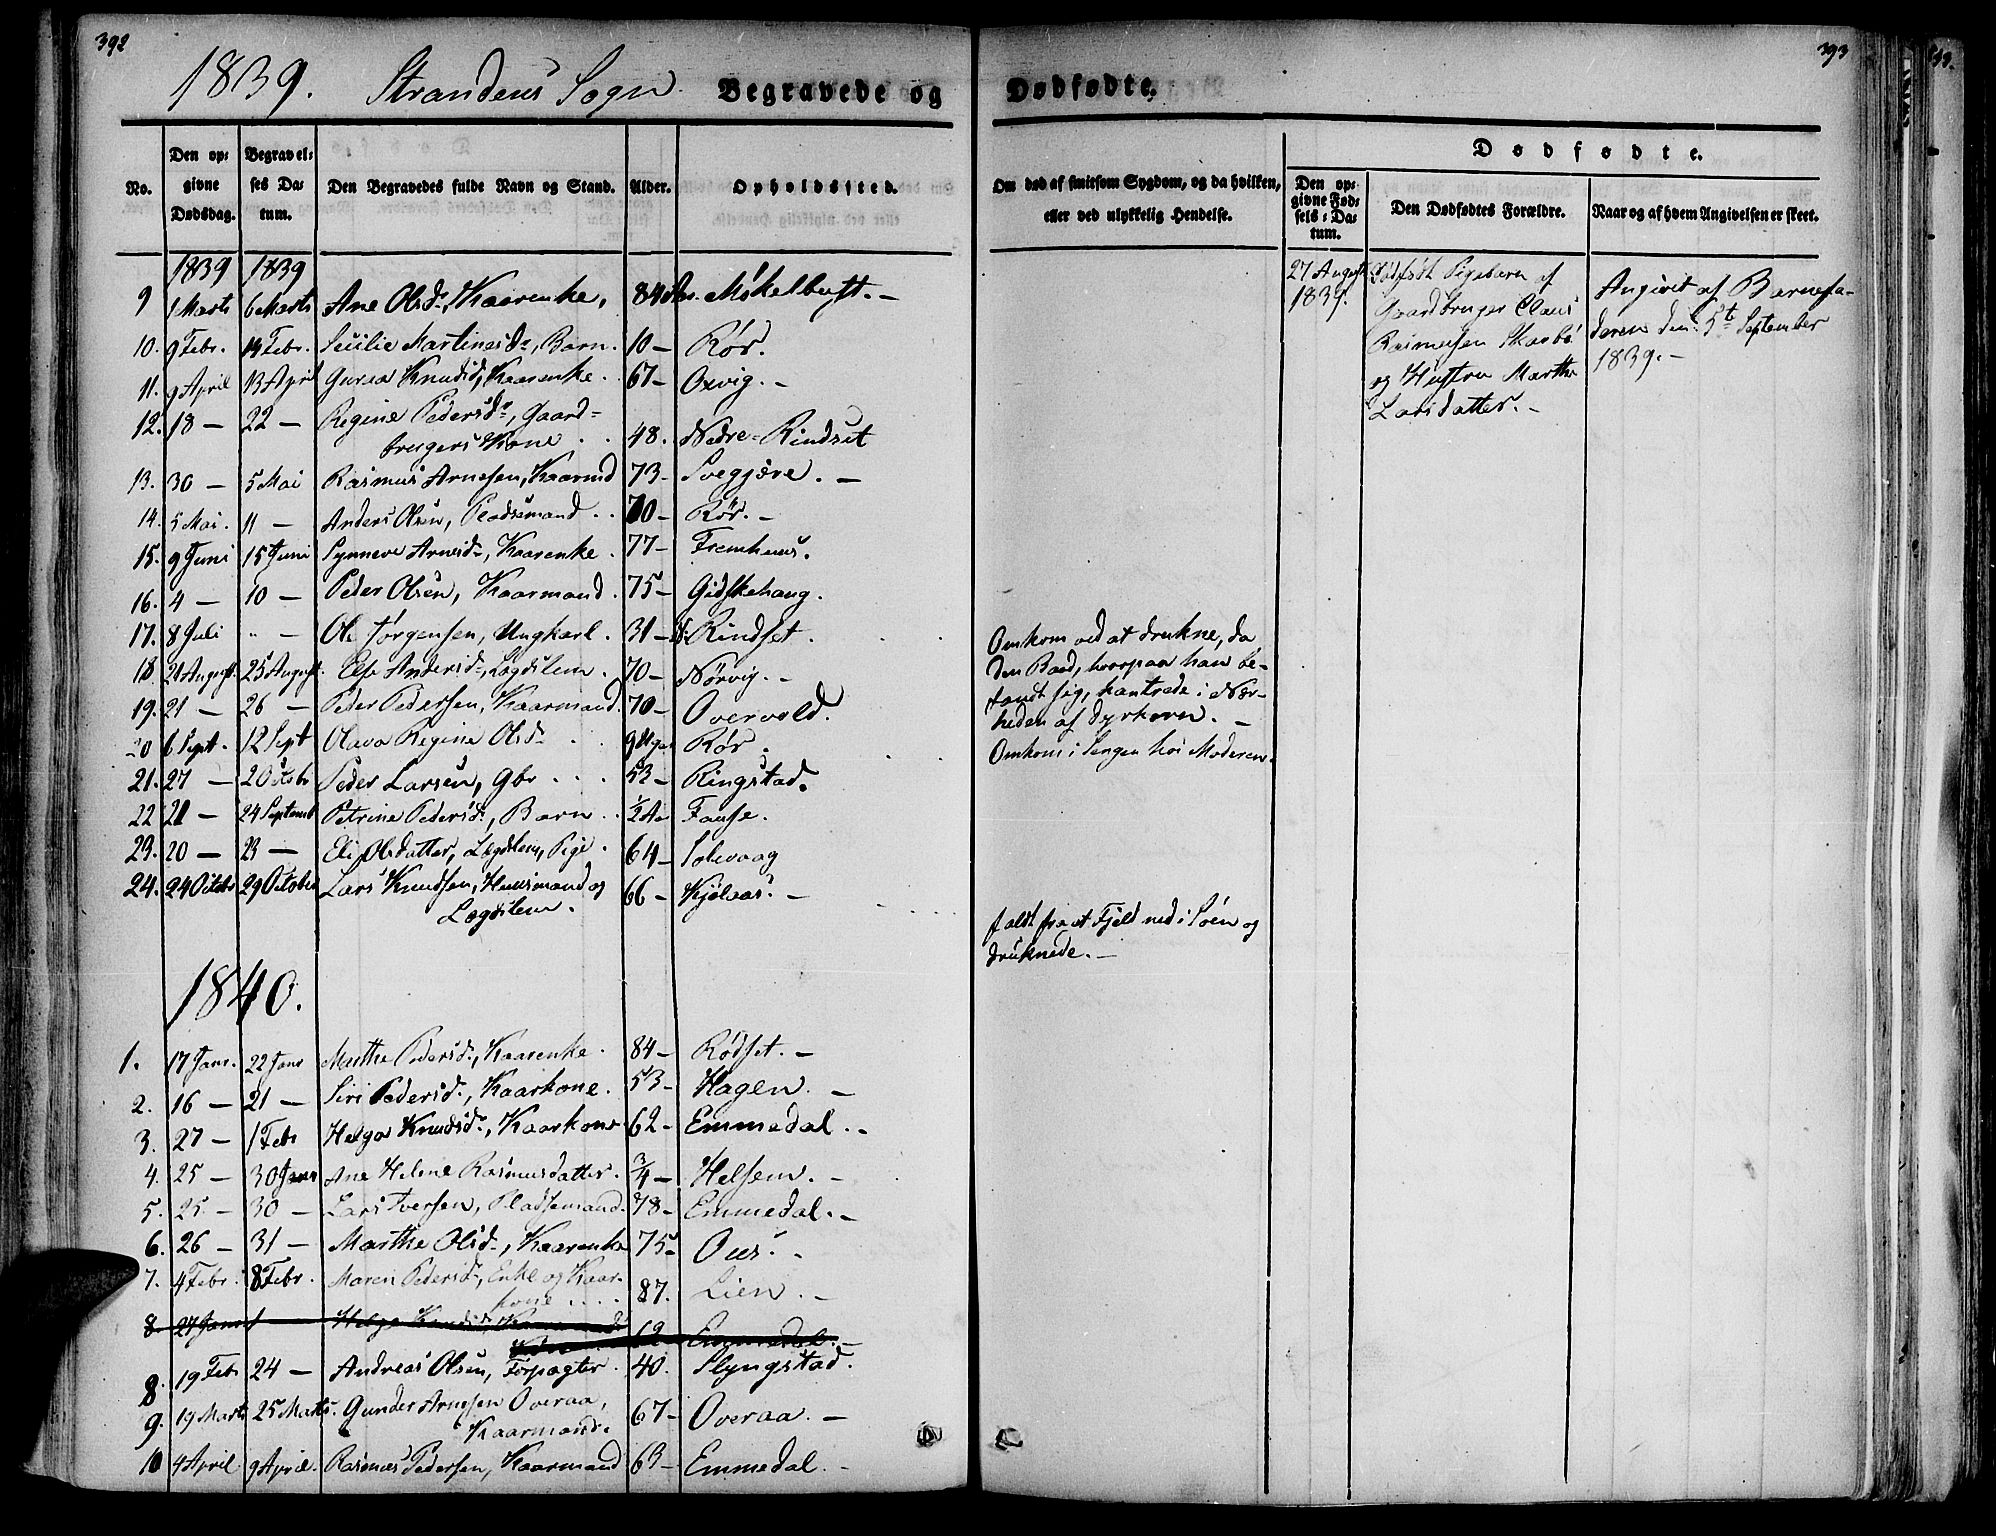 392
1839. Strandens Sogn. Begravede og
No.
Den opgivne Dødsdag.
Begravelses Datum.
Den Begravedes fulde Navn og Stand.
Alder.
Opholdssted.
1839 1839
9 1 Marts 6 Marts Ane Olsd., Kaarenke, 84 Aar. Mökelbust. –
10. 9 Febr. 14 Febr. Martinesd., Barn. 10 – Rör.
11. 9 April 13 April Knudsd., Kaarenke. 67 – Oxvig. –
12. 18 – 22 – Regine Pedersd., Gaard=
brugers Kone . . 48. Nedre=Rindset
13. 30 – 5 Mai Rasmus Arnesen, Kaarmd 73 – Sveggjere. –
14. 5 Mai. 11 – Anders Olsen, Pladsemand . . 70 – Rör. –
15. 9 Juni 15 Juni Synneve Arnesd., Kaarenke. 77 – Fremhuus.
16. 4 – 10 – Peder Olsen, Kaarmand. 75 – Gidskehaug.
17. 8 Juli " – Ole Jörgensen, Ungkarl. 31 – Rindset.
18 21 August. 25 August. Else Andersd., Lægdslem. 70 – Nörvig. –
19. 21 – 26 – Peder Pedersen, Kaarmand. 70 – Overvold.
20 6 Sept. 12 Sept Olava Regine Olsd. . 9 Uger Rör.
21. 27 – 2 Octobr Peder Larsen, Gbr . . . 53 – Ringstad.
22 21 – 24 Septemb Petrine Pedersd., Barn . . 1/2 Aar Fause.
23. 20 – 23 – Eli Olsdatter, Lægdslem, Pige. 64 – Solevaag
24. 24 Octobr 29 October Lars Knudsen, Huusmand og
Lægdslem. 66 – Kjölaas. –
1840.
1. 17 Janr. 22 Janr Marthe Pedersd., Kaarenke. 84 – Rödset. –
2. 16 – 21 – Siri Pedersd., Kaarkone. 53 – Hagen. –
3. 27 – 1 Febr Helga Knudsd., Kaarkone 62 – Emmedal. –
4. 25 – 30 Janr Ane Helene Rasmusdatter. 3/4 – Helsem. –
5. 25 – 30 – Lars Iversen, Pladsemand. 78 – Emmedal. –
6. 26 – 31 – Marthe Olsd., Kaarenke 75 – Ous. –
7. 4 Febr. 8 Febr. Maren Pedersd., Enke og Kaar-
kone . . . . 87. Lien. –
8. 27 Janr Helga Knudsd., 62 Emmedal. –
8. 19 Febr 24 – Andreas Olsen, Forpagter. 40. Slyngstad.
9. 19 Marts 25 Marts. Gunder Arnesen Overaa,
Kaarmand. 67 – Overaa. –
10 4 April 9 April. Rasmus Pedersen, Kaarmand 63 – Emmedal. –
393
Dødfødte.
Om død af smitsom Sygdom, og da hvilken,
eller ved ulykkelig Hendelse.
Dødfødte.
Den opgivne Fødsels-Datum.
Den Dødfødtes Forældre.
Naar og af hvem Angivelsen er skeet.
27 August
1839.
Dödfödt Pigebarn af
Gaardbruger Claus
Rasmusen Skarbö
og Hustru Marthe
Larsdatter. –
Angivet af Barnefa-
deren den 5te September
1839. –
Omkom ved at drukne, da
den Baad, hvorpaa han be-
fandt sig, kantrede i Nær-
heden af Dyrkorn. –
Omkom i Sengen hos Moderen.
faldt fra et Fjeld ned i Söen og
druknede. –